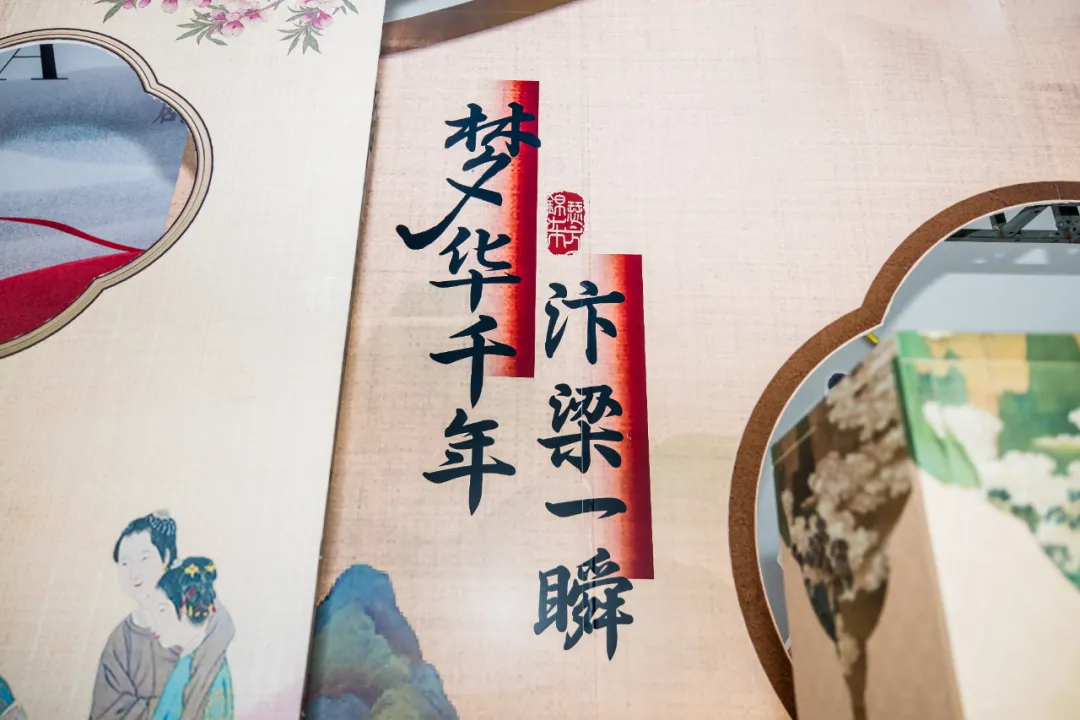 汴梁一瞬
梦华千年